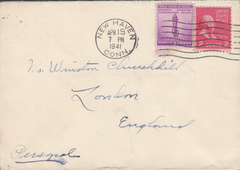 NEW HAVEN
APR 15
7 PM
1941
CONN.
To Winston Churchhild
London
England
Personal